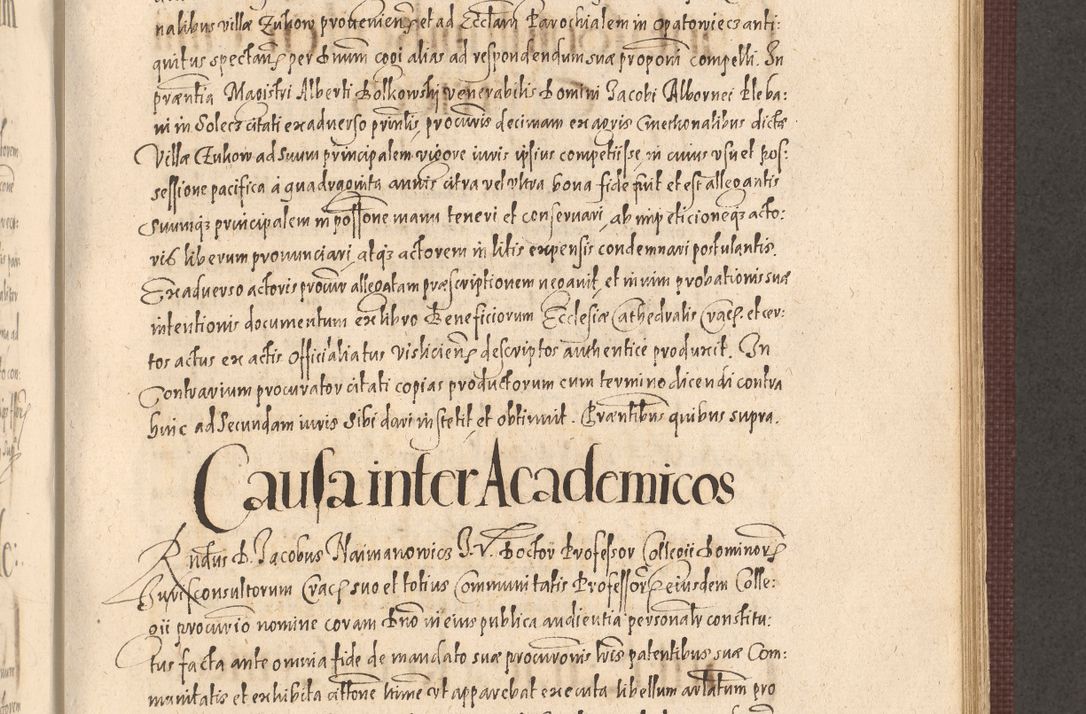 nalibus villæ Zukow provenien et ad Ecclam Parochialem in Opatowiecz anti:
quitus spectan per Dnum cogi alias ad respondendum suæ proponi compelli. In
præntia Magistri Alberti Bolkowski venerabilis Domini Jacobi Albornei Pleba:
ni in Solecz citati ex adverso prinlis procuris decimam ex agris Cmethonalibus dictæ
Villæ Zukow ad Suum principalem vigore iuris ipsius competiisse, in cuius usu et pos:
sessione pacifica à quadraginta annis citra vel ultra bona fide fuit et est allegantis
Suumqz principalem in possone manu teneri et conservari, ab impeticioneqz acto:
ris liberum pronunciari, atqz actorem in litis expensis condemnari postulantis.
Ex adverso actoris procur allegatam præscriptionem negavit, et in vim probationis suæ
intentionis documentum ex libro Beneficiorum Ecclesiæ Cathedralis Crac et cer:
tos actus ex actis Officialiatus Vislicien descriptos authenticè produxit. In
Contrarium procurator citati copias productorum cum termino dicendi contra
huic ad Secundam iuris Sibi dari institit et obtinuit. Præntibus quibus supra.
Causa inter Academicos
Rndus D. Jacobus Naimanowicz I. V. Doctor Professor Collegii Dominor
Jurisconsultorum Crac suo et totius Communitatis Professor eiusdem Colle:
gii procurio nomine coram Dno in eius publica audientia personalr constitu:
tus facta ante omnia fide de mandato suæ procuronis lris patentibus suæ Com:
munitatis et exhibita citione ltime ut apparebat executa libellum artatum pro